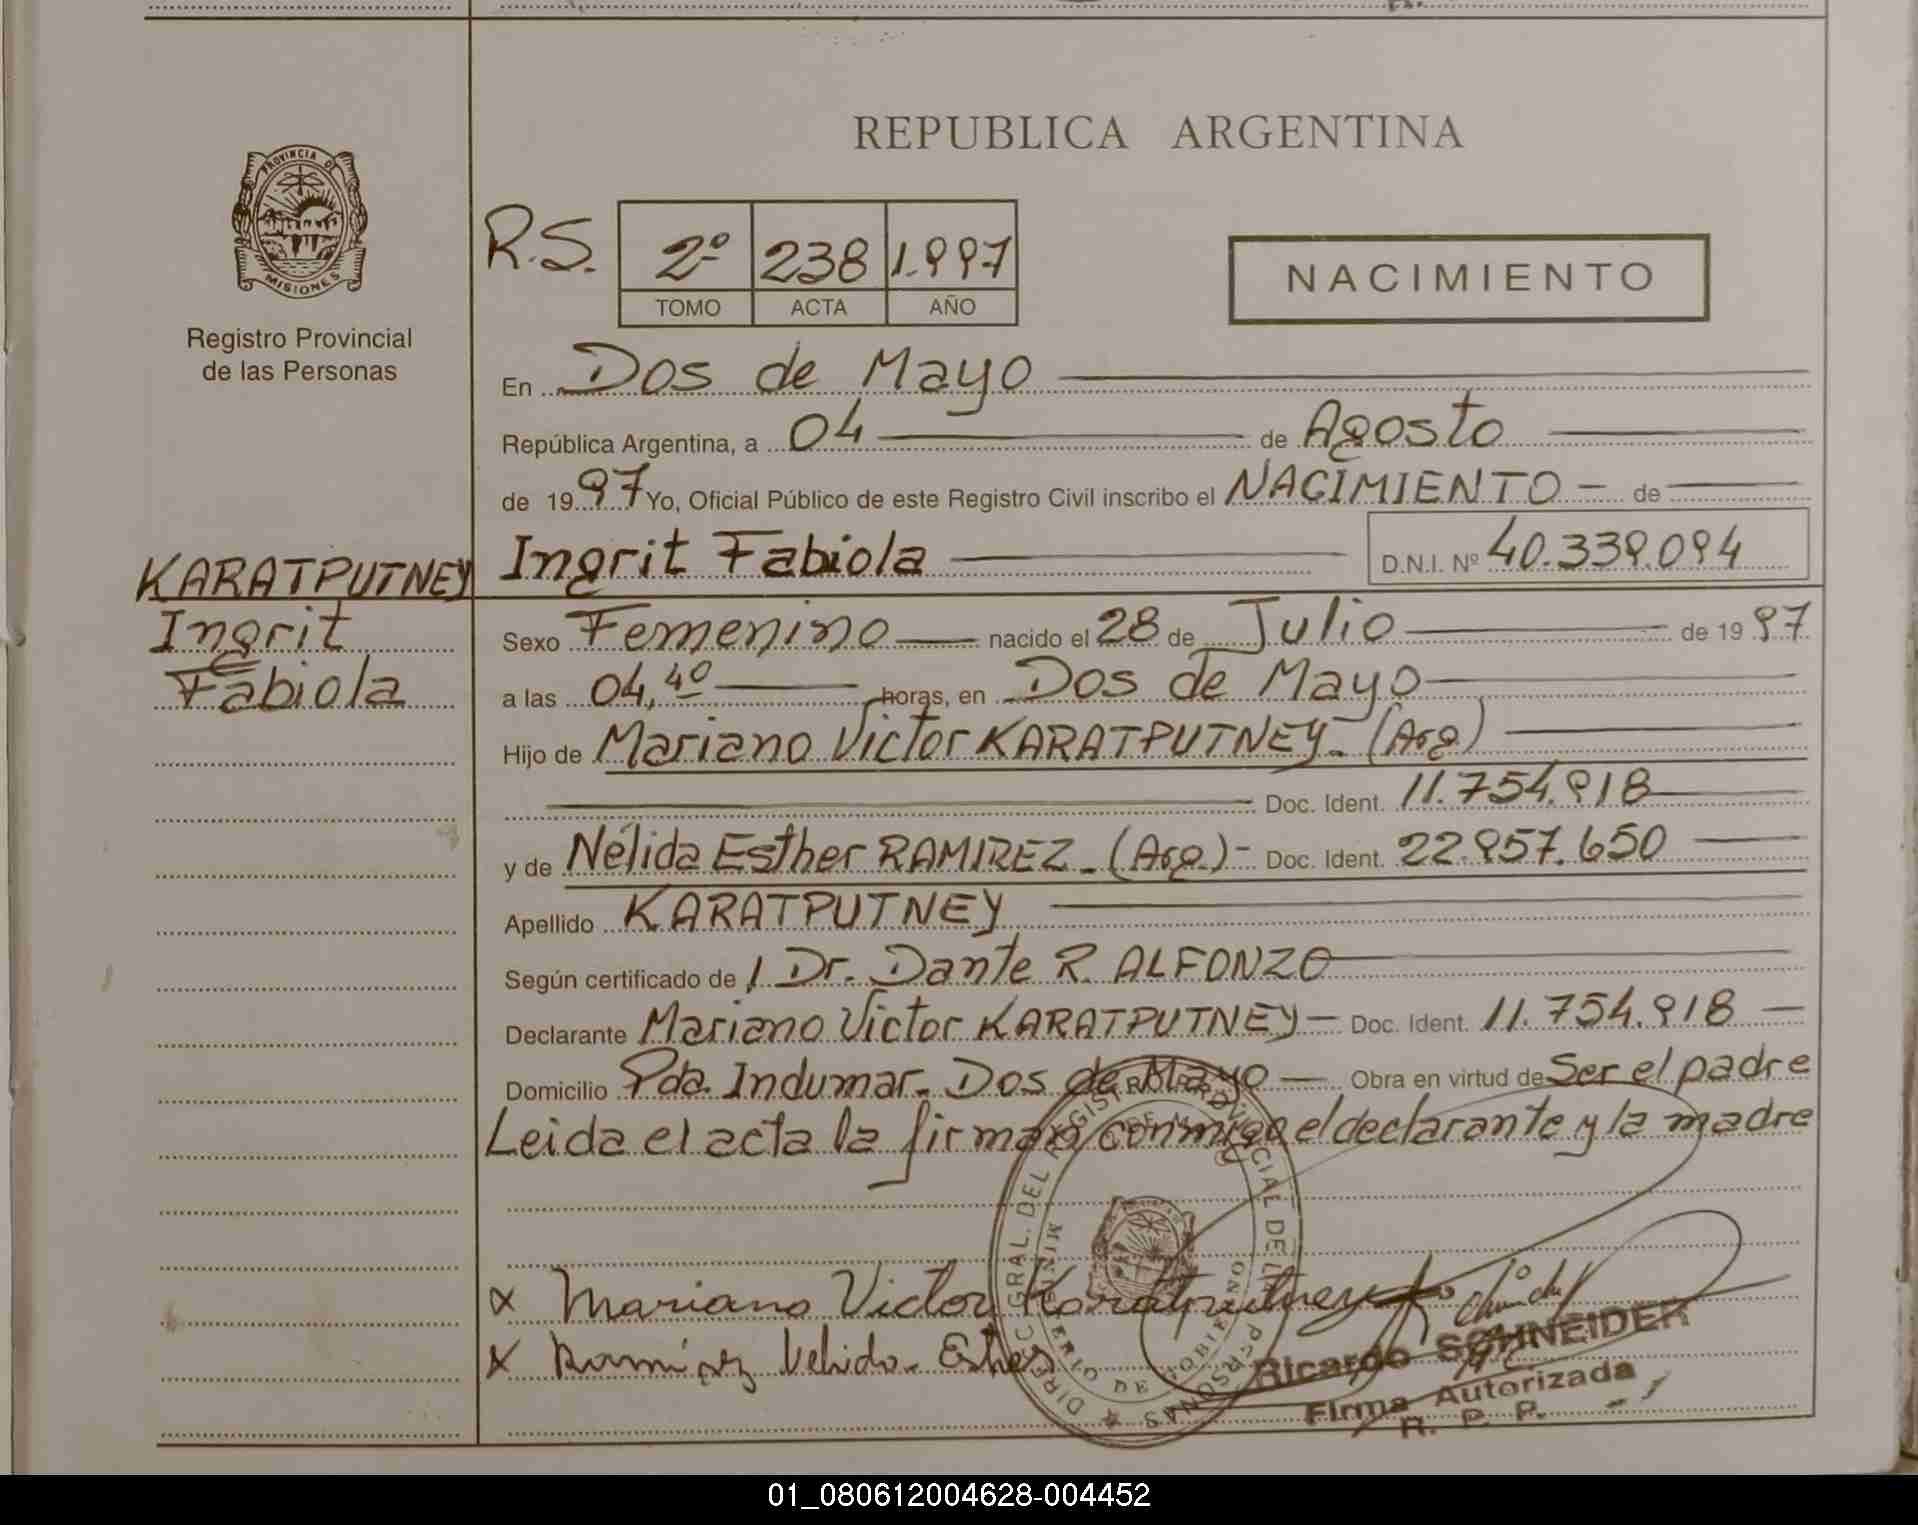 REPUBLICA ARGENTINA
PROVINCIA DE
MISIONES
Registro Provincial
de las Personas
R.S. 2º 238 1.997
TOMO ACTA AÑO
NACIMIENTO
En Dos de Mayo
República Argentina, a 04 de Agosto
de 1997 Yo, Oficial Público de este Registro Civil inscribo el NACIMIENTO - de
KARATPUTNEY Ingrit Fabiola D.N.I. Nº 40.339.094
Ingrit
Fabiola
Sexo Femenino nacido el 28 de Julio de 1997
a las 04,40 horas, en Dos de Mayo
Hijo de Mariano Victor KARATPUTNEY - (Arg)
Doc. Ident. 11.754.918
y de Nélida Esther RAMIREZ - (Arg.) - Doc. Ident. 22.957.650
Apellido KARATPUTNEY
Según certificado de / Dr. Dante R. ALFONZO
Declarante Mariano Victor KARATPUTNEY - Doc. Ident. 11.754.918 -
Domicilio Pda. Indumar - Dos de Mayo - Obra en virtud de Ser el padre
Leida el acta la firman conmigo el declarante y la madre
DIREC. GRAL. DEL REGISTRO PROVINCIAL DE LAS PERSONAS
MINISTERIO DE GOBIERNO
x Mariano Victor Karatputney
x Ramirez Nelida Esther
Ricardo SCHNEIDER
Firma Autorizada
R. P. P.
01_080612004628-004452